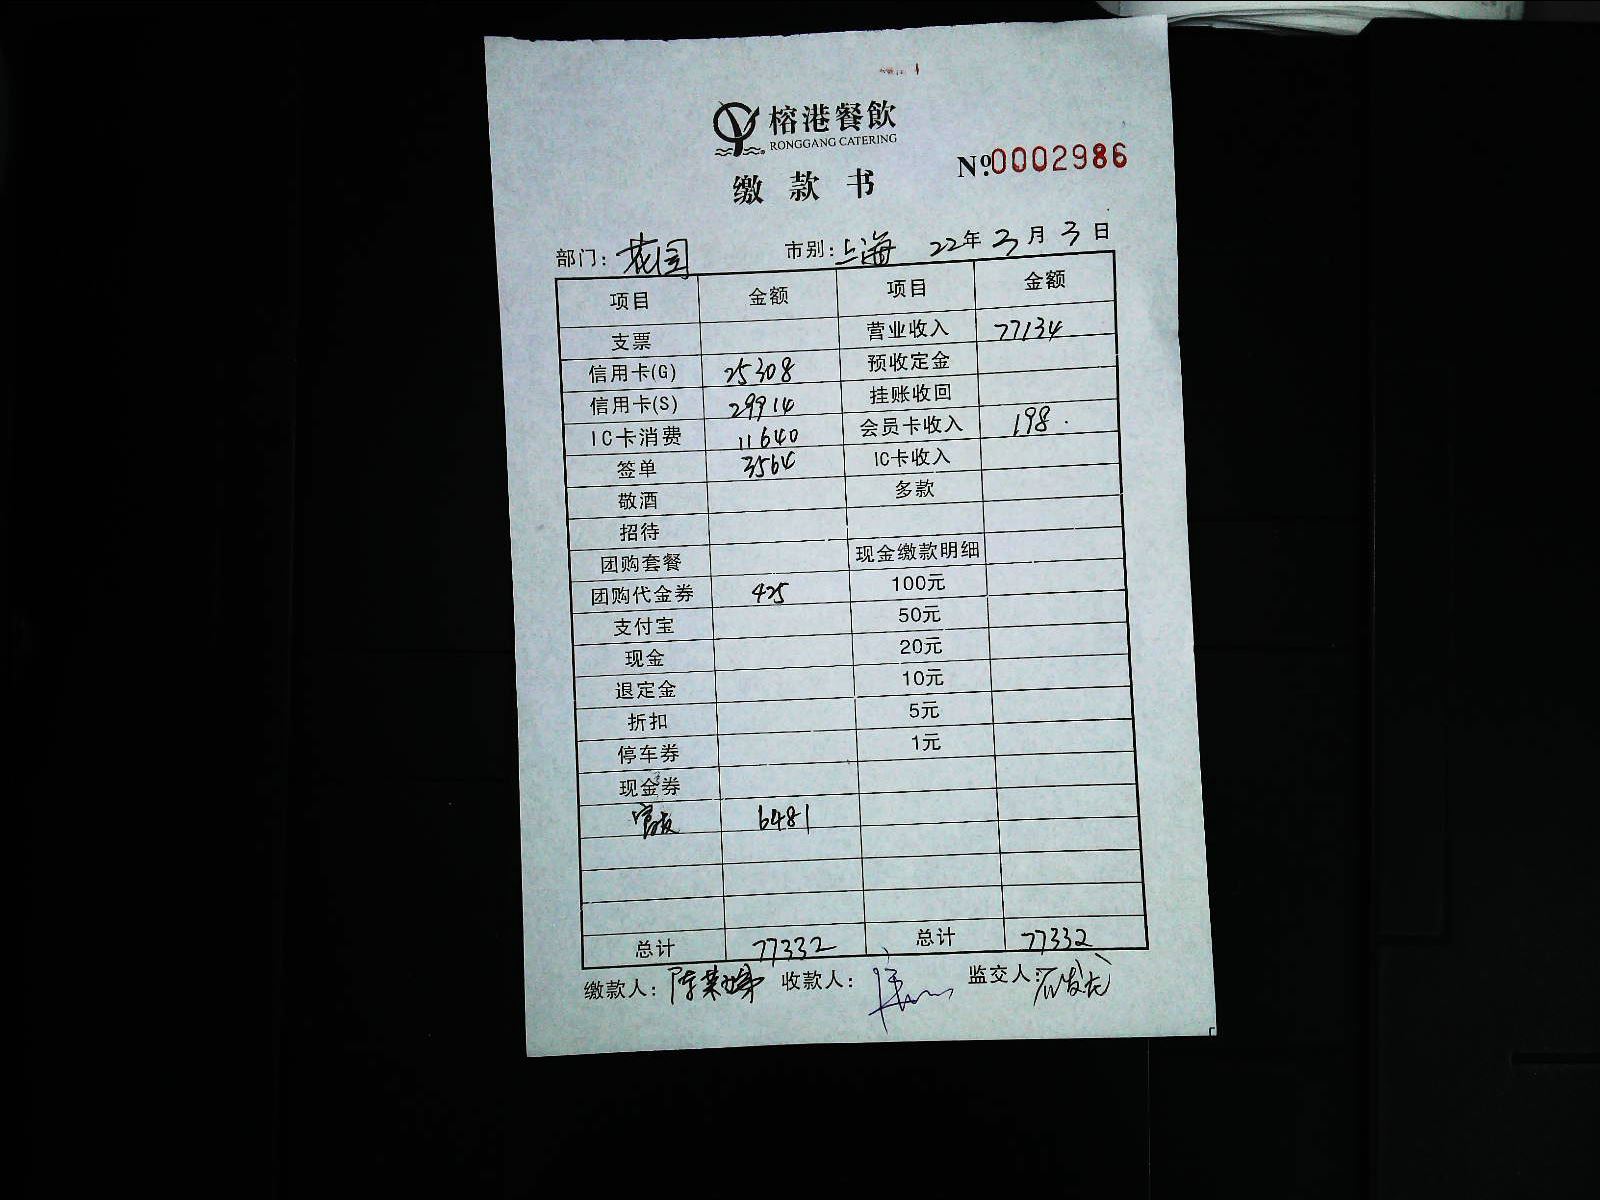 榕港餐飲
RONGGANG CATERING
缴款书
№0002986
部门：花园 市别：上海 22年3月3日
项目 金额 项目 金额
支票 营业收入 77134
信用卡(G) 25308 预收定金
信用卡(S) 29914 挂账收回
IC卡消费 11640 会员卡收入 198.
签单 3564 IC卡收入
敬酒 多款
招待
团购套餐 现金缴款明细
团购代金券 425 100元
支付宝 50元
现金 20元
退定金 10元
折扣 5元
停车券 1元
现金券
6481
总计 77332 总计 77332
缴款人： 收款人： 监交人：